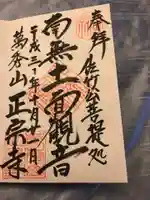 奉拝 佐竹公菩提処
南無十一面観音
平成三十年十月十一日
萬秀山 正宗寺